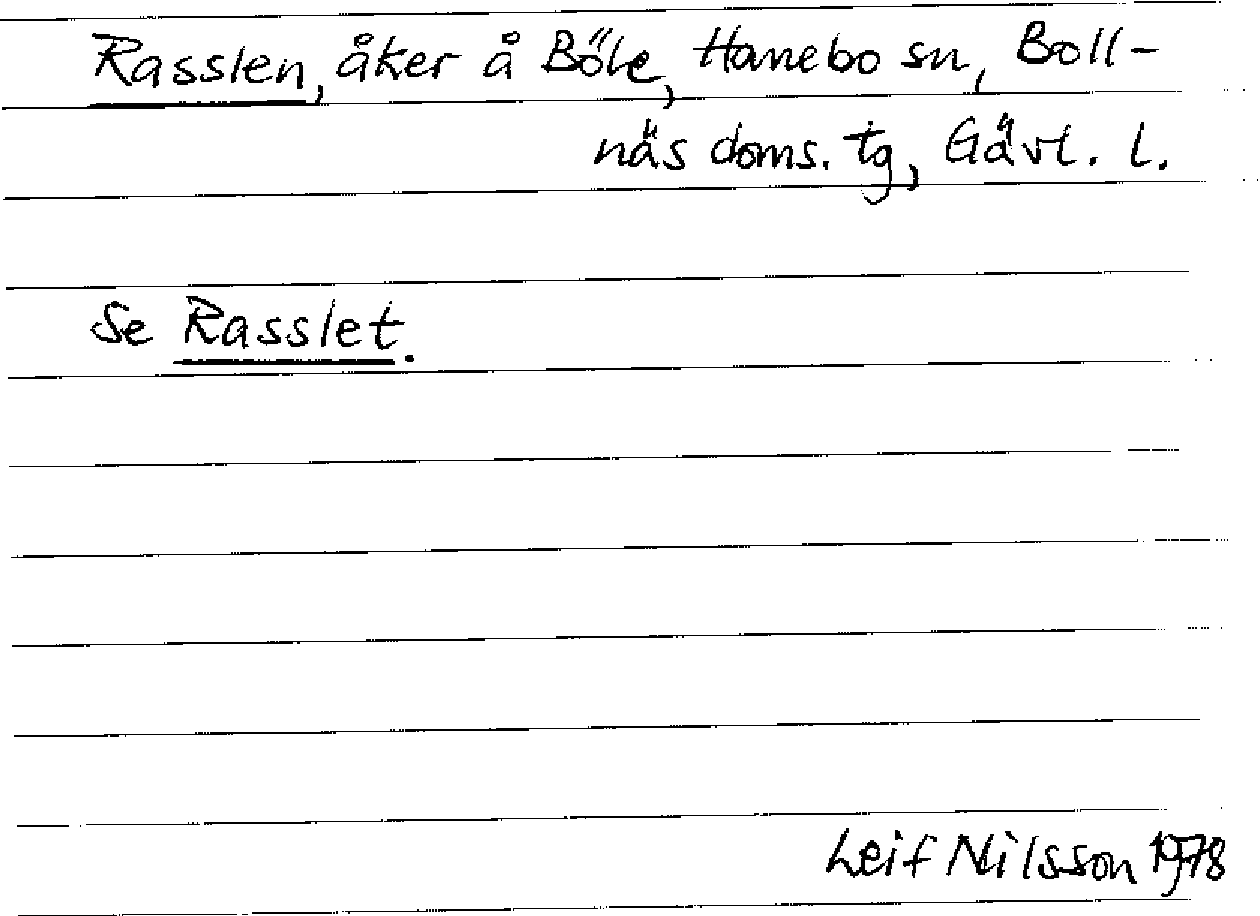 Rasslen, åker å Böle, Hanebo sn, Boll-
näs doms. tg, Gävl. l.
Se Rasslet.
Leif Nilsson 1978